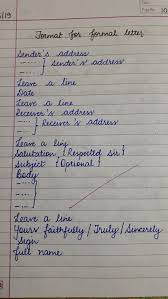 5/19
Format for formal letter
Sender's address
-----
----- } Sender's address
Leave a line
Date
Leave a line
Receiver's address
-----
---- } Receiver's address
Leave a line
Salutation { Respected sir }
Subject { Optional }
Body
----
----
----
Leave a line
Yours faithfully / Truly / Sincerely
Sign
full name